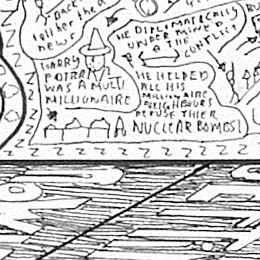 BACK
news
HE DIPLOMATICALLY
UNDERMINED
THE
CONFLICT
HARRY
POTTER
WAS A MULTI
MILLIONAIRE
HE HELPED
ALL HIS
MILLIONAIRE
NEIGHBOURS
DEFUSE THIER
NUCLEAR BOMBS!
Z Z Z Z Z Z Z Z Z Z Z Z